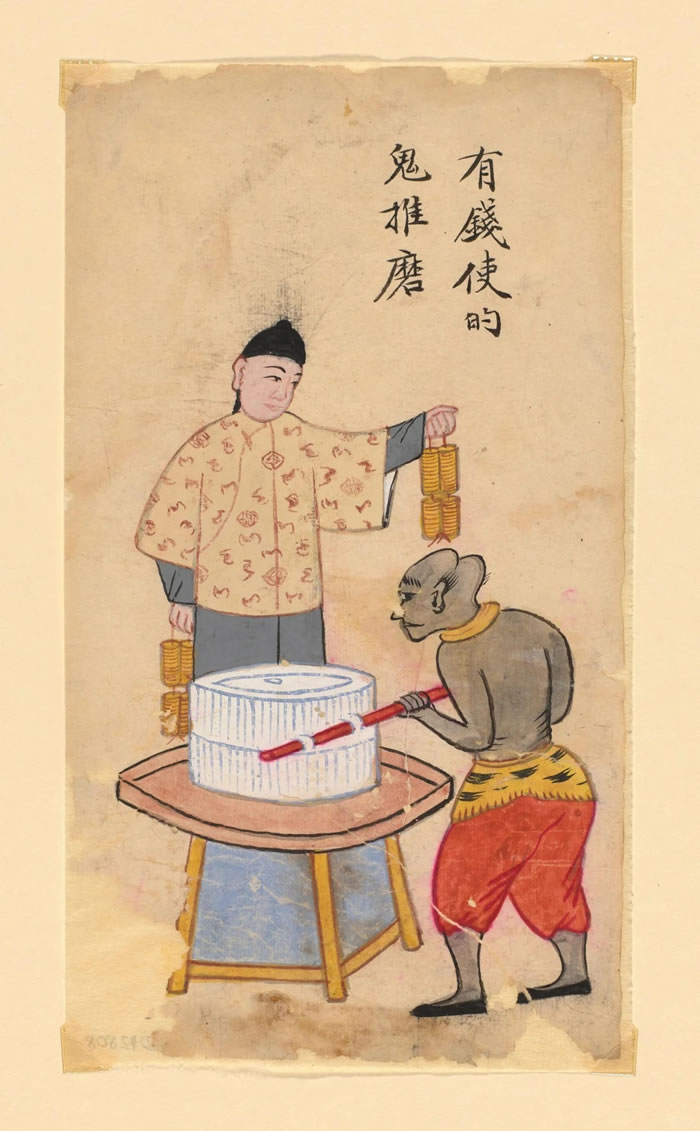 有錢使的
鬼推磨